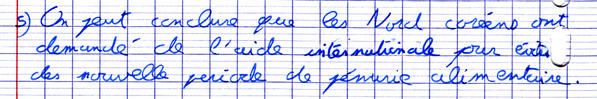 5) On peut conclure que les Nord coréens ont
demandé de l'aide internationale pour évite
des nouvelle periode de pénurie alimentaire.